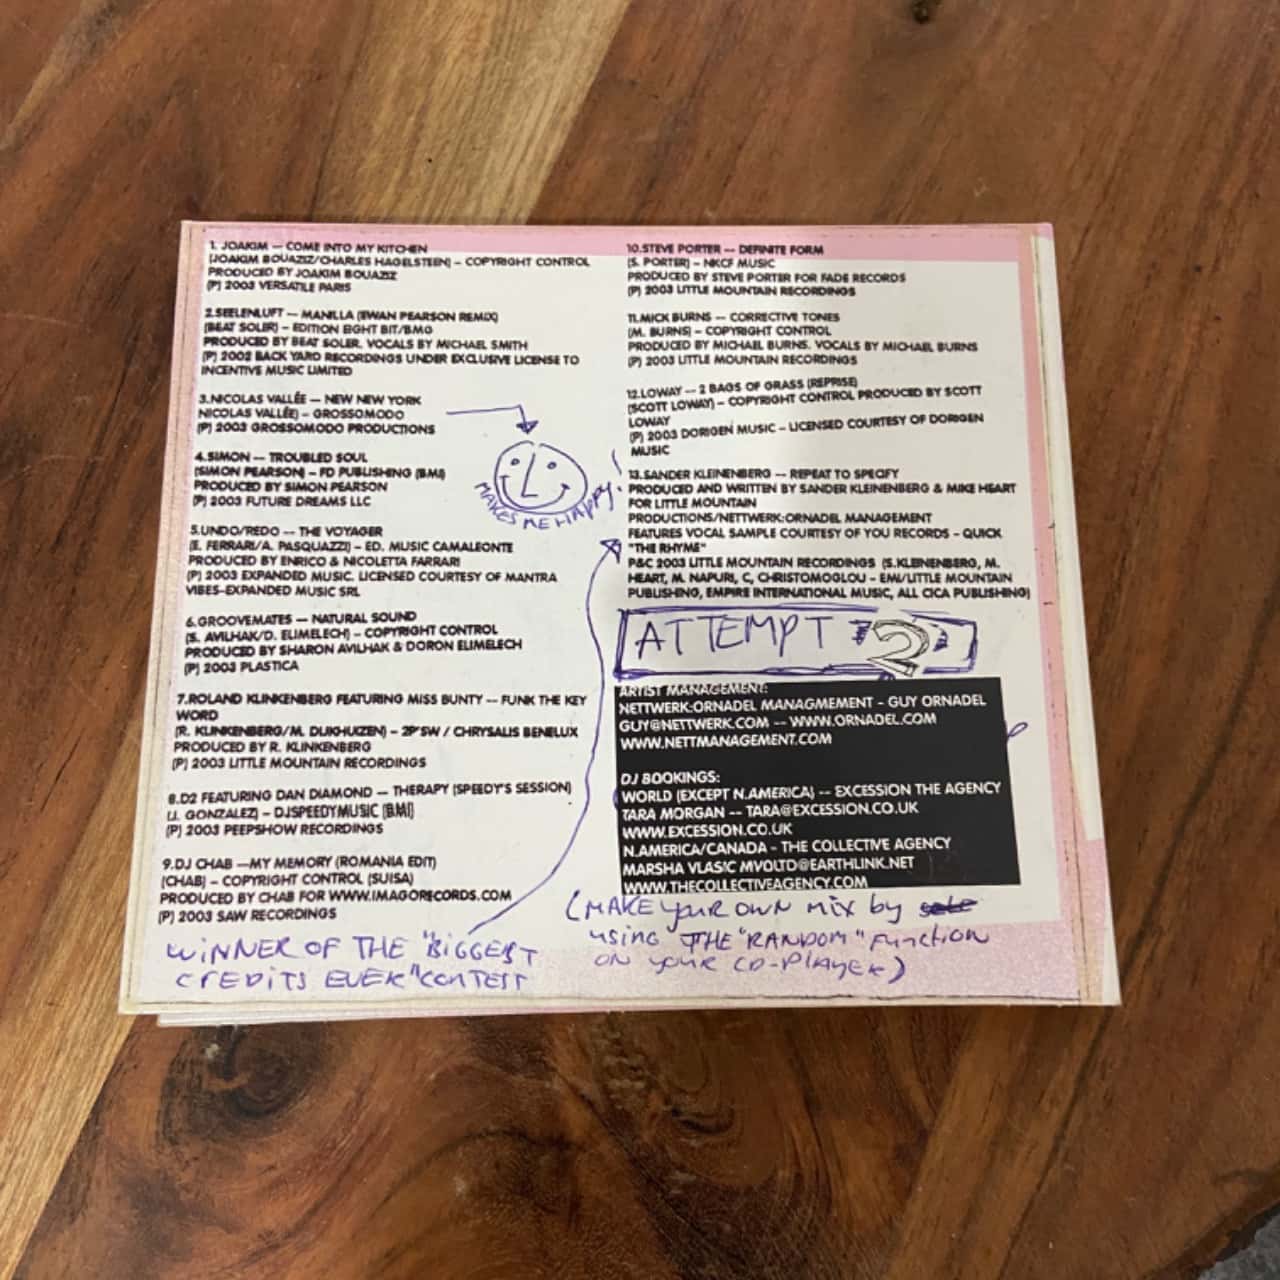 1. JOAKIM — COME INTO MY KITCHEN
(JOAKIM BOUAZIZ/CHARLES HAGELSTEEN) – COPYRIGHT CONTROL
PRODUCED BY JOAKIM BOUAZIZ
(P) 2003 VERSATILE PARIS
2.SEELENLUFT — MANILLA (EWAN PEARSON REMIX)
(BEAT SOLER) – EDITION EIGHT BIT/BMG
PRODUCED BY BEAT SOLER. VOCALS BY MICHAEL SMITH
(P) 2002 BACK YARD RECORDINGS UNDER EXCLUSIVE LICENSE TO
INCENTIVE MUSIC LIMITED
3.NICOLAS VALLÉE — NEW NEW YORK
NICOLAS VALLÉE) – GROSSOMODO
(P) 2003 GROSSOMODO PRODUCTIONS
MAKES ME HAPPY!
4.SIMON — TROUBLED SOUL
(SIMON PEARSON) – FD PUBLISHING (BMI)
PRODUCED BY SIMON PEARSON
(P) 2003 FUTURE DREAMS LLC
5.UNDO/REDO -- THE VOYAGER
(E. FERRARI/A. PASQUAZZI) – ED. MUSIC CAMALEONTE
PRODUCED BY ENRICO & NICOLETTA FARRARI
(P) 2003 EXPANDED MUSIC. LICENSED COURTESY OF MANTRA
VIBES-EXPANDED MUSIC SRL
6.GROOVEMATES — NATURAL SOUND
(S. AVILHAK/D. ELIMELECH) – COPYRIGHT CONTROL
PRODUCED BY SHARON AVILHAK & DORON ELIMELECH
(P) 2003 PLASTICA
7.ROLAND KLINKENBERG FEATURING MISS BUNTY -- FUNK THE KEY
WORD
(R. KLINKENBERG/M. DIJKHUIZEN) – 2P'SW / CHRYSALIS BENELUX
PRODUCED BY R. KLINKENBERG
(P) 2003 LITTLE MOUNTAIN RECORDINGS
8.D2 FEATURING DAN DIAMOND — THERAPY (SPEEDY'S SESSION)
(J. GONZALEZ) – DJSPEEDYMUSIC (BMI)
(P) 2003 PEEPSHOW RECORDINGS
9.DJ CHAB —MY MEMORY (ROMANIA EDIT)
(CHAB) – COPYRIGHT CONTROL (SUISA)
PRODUCED BY CHAB FOR WWW.IMAGORECORDS.COM
(P) 2003 SAW RECORDINGS
WINNER OF THE "BIGGEST
CREDITS EVER" CONTEST
10.STEVE PORTER -- DEFINITE FORM
(S. PORTER) – NKCF MUSIC
PRODUCED BY STEVE PORTER FOR FADE RECORDS
(P) 2003 LITTLE MOUNTAIN RECORDINGS
11.MICK BURNS -- CORRECTIVE TONES
(M. BURNS) – COPYRIGHT CONTROL
PRODUCED BY MICHAEL BURNS. VOCALS BY MICHAEL BURNS
(P) 2003 LITTLE MOUNTAIN RECORDINGS
12.LOWAY -- 2 BAGS OF GRASS (REPRISE)
(SCOTT LOWAY) – COPYRIGHT CONTROL PRODUCED BY SCOTT
LOWAY
(P) 2003 DORIGEN MUSIC – LICENSED COURTESY OF DORIGEN
MUSIC
13.SANDER KLEINENBERG -- REPEAT TO SPECIFY
PRODUCED AND WRITTEN BY SANDER KLEINENBERG & MIKE HEART
FOR LITTLE MOUNTAIN
PRODUCTIONS/NETTWERK:ORNADEL MANAGEMENT
FEATURES VOCAL SAMPLE COURTESY OF YOU RECORDS - QUICK
"THE RHYME"
P&C 2003 LITTLE MOUNTAIN RECORDINGS (S.KLEINENBERG, M.
HEART, M. NAPURI, C, CHRISTOMOGLOU - EMI/LITTLE MOUNTAIN
PUBLISHING, EMPIRE INTERNATIONAL MUSIC, ALL CICA PUBLISHING)
ATTEMPT 2
ARTIST MANAGEMENT:
NETTWERK:ORNADEL MANAGMEMENT - GUY ORNADEL
GUY@NETTWERK.COM -- WWW.ORNADEL.COM
WWW.NETTMANAGEMENT.COM
DJ BOOKINGS:
WORLD (EXCEPT N.AMERICA) -- EXCESSION THE AGENCY
TARA MORGAN -- TARA@EXCESSION.CO.UK
WWW.EXCESSION.CO.UK
N.AMERICA/CANADA - THE COLLECTIVE AGENCY
MARSHA VLASIC MVOLTD@EARTHLINK.NET
WWW.THECOLLECTIVEAGENCY.COM
(MAKE YOUR OWN MIX BY
USING THE "RANDOM" FUNCTION
ON YOUR CD-PLAYER)